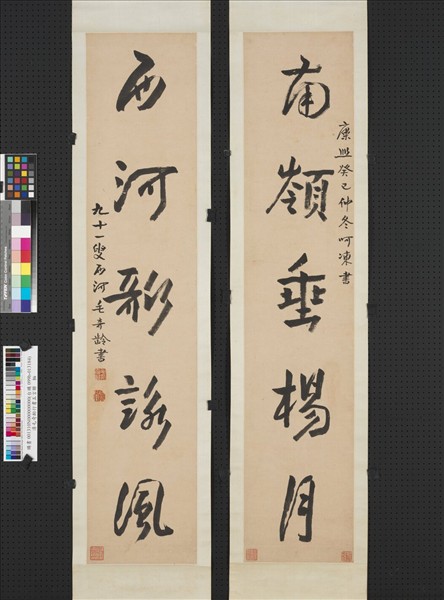 南嶺垂楊月
康熙癸巳仲冬呵凍書
西河歌詠風
九十一叟西河毛奇齡書